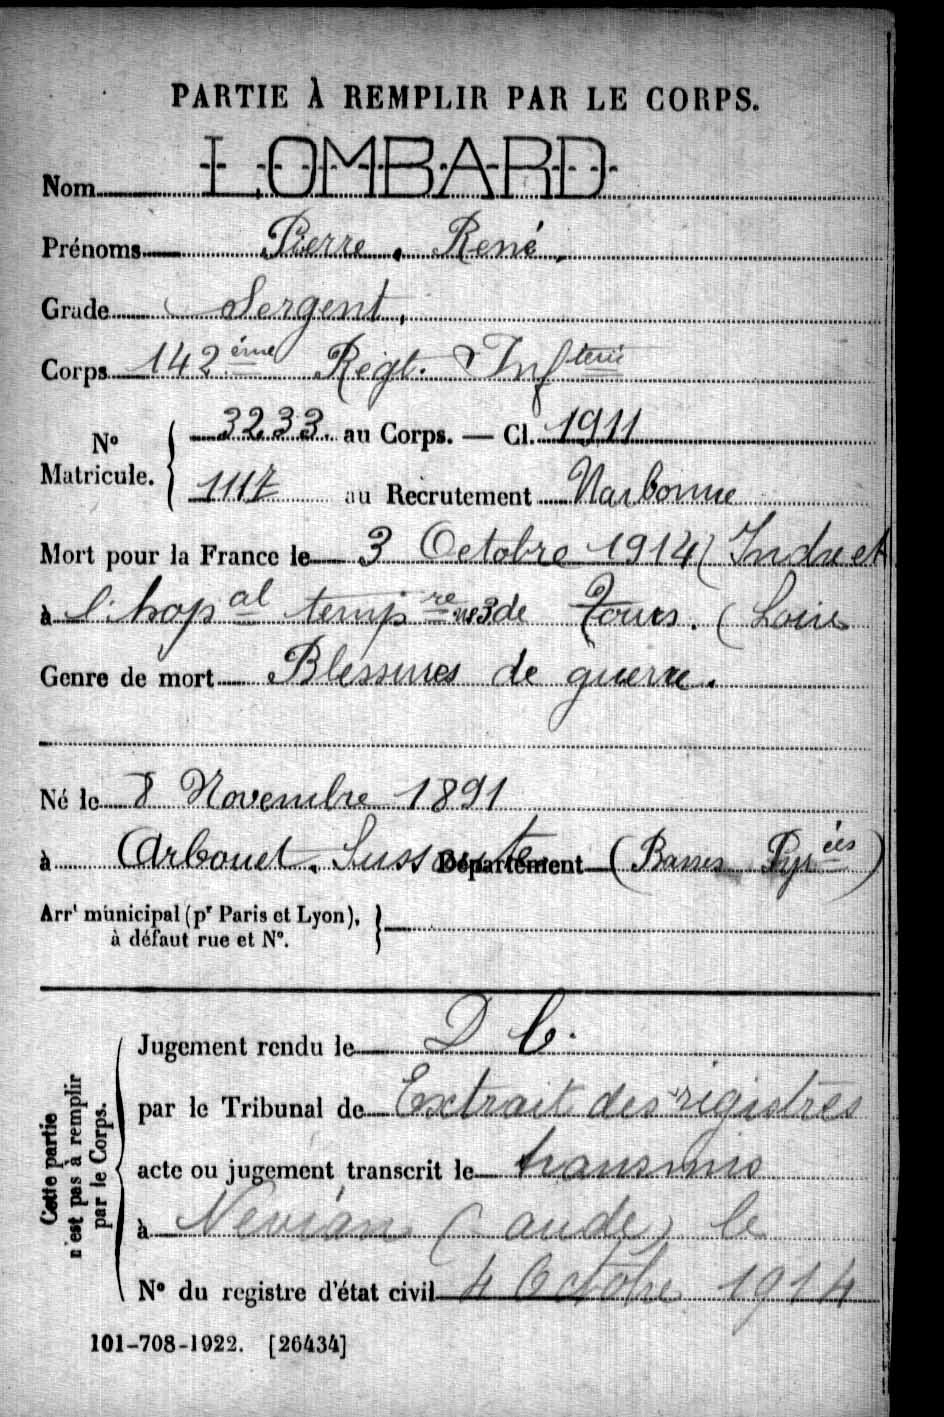 PARTIE À REMPLIR PAR LE CORPS.
Nom LOMBARD
Prénoms Pierre, René,
Grade Sergent,
Corps 142ème Régt. d'Infterie
N° Matricule. { 3233 au Corps. — Cl. 1911
1117 au Recrutement Narbonne
Mort pour la France le 3 Octobre 1914 (Indre et
à l'hopal tempre n°3 de Tours. (Loire
Genre de mort Blessures de guerre.
Né le 8 Novembre 1891
à Arbouet. Sussaute Département (Basses Pyrées)
Arrt municipal (pr Paris et Lyon), à défaut rue et N°. }
Cette partie n'est pas à remplir par le Corps.
Jugement rendu le D C.
par le Tribunal de Extrait des registres
acte ou jugement transcrit le transmis
à Névian (aude) le
N° du registre d'état civil 4 Octobre 1914
101-708-1922. [26434]